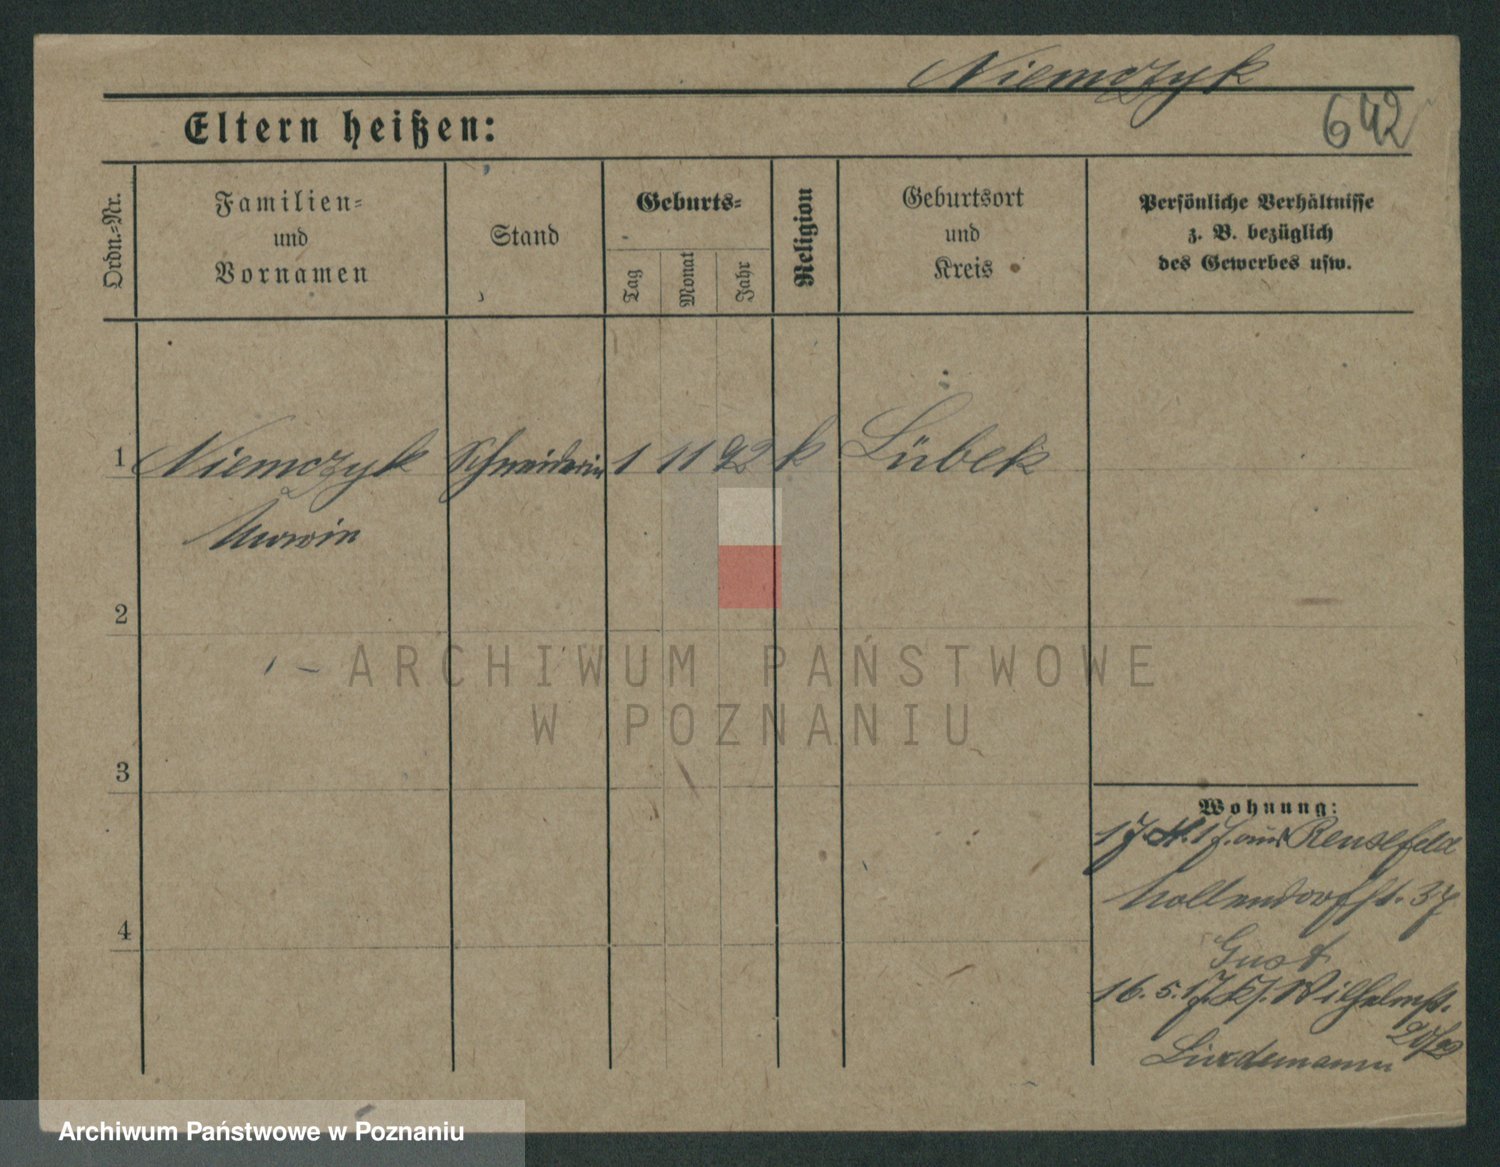 Niemczyk
642
Eltern heißen:
Ordn.-Nr.
Familien-
und
Vornamen
Stand
Geburts-
Tag
Monat
Jahr
Religion
Geburtsort
und
Kreis
Persönliche Verhältnisse
z. B. bezüglich
des Gewerbes usw.
1 Niemczyk Schneiderin 1 11 92 k Lübek
2
3
4
Wohnung:
17.4.17. aus Rensefeld
Nollendorfst. 37
Gust
16.5.17. Wilhelmst.
20/22
Lindemann
ARCHIWUM PAŃSTWOWE
W POZNANIU
Archiwum Państwowe w Poznaniu